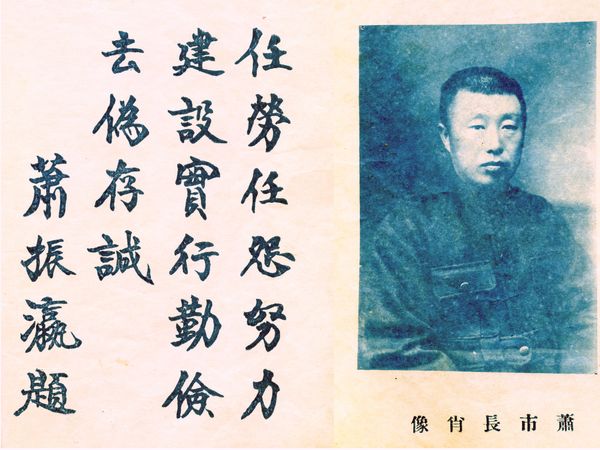 蕭市長肖像
任勞任怨努力
建設實行勤儉
去偽存誠
蕭振瀛題